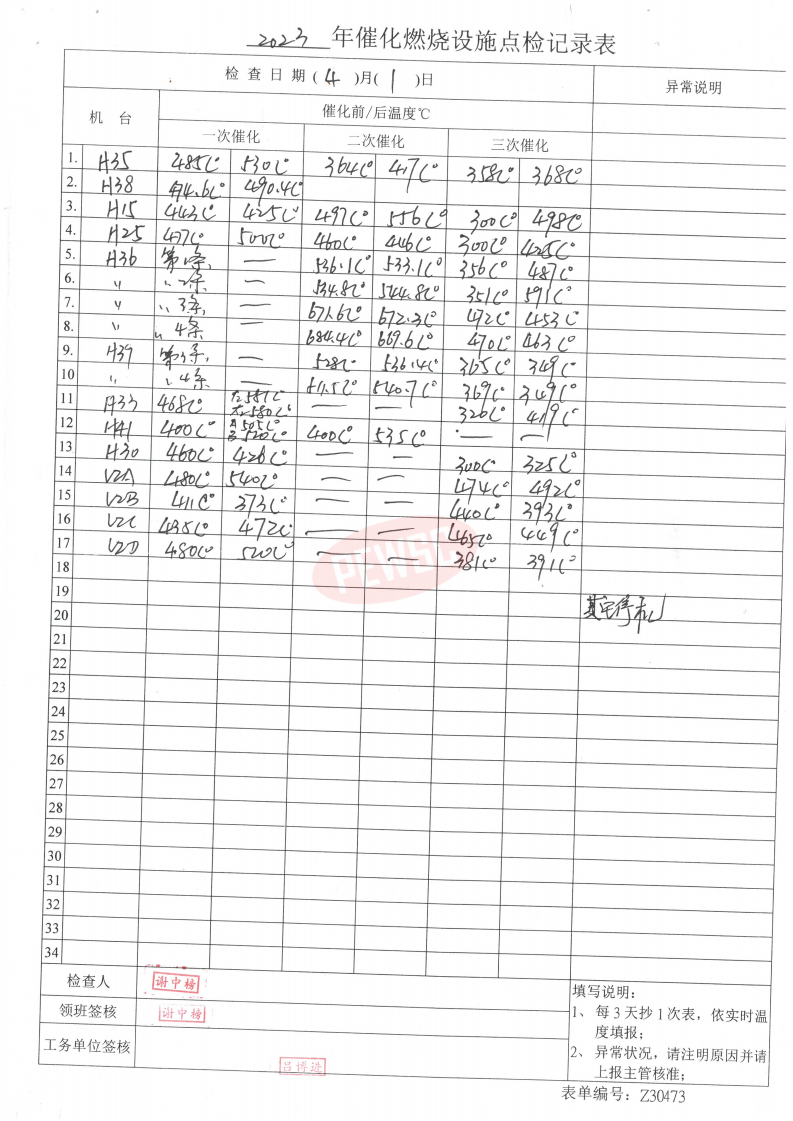 2023 年催化燃烧设施点检记录表
检查日期(4)月(1)日
异常说明
机台
催化前/后温度℃
一次催化 二次催化 三次催化
1. H35 485C° 530C° 364C° 417C° 358C° 368C°
2. H38 474.6C° 490.4C°
3. H15 443C° 425C° 497C° 556C° 300C° 498C°
4. H25 477C° 500C° 460C° 446C° 300C° 425C°
5. H36 — 536.1C° 533.1C° 356C° 487C°
6. 〃 〃2条 — 534.8C° 544.8C° 351C° 591C°
7. 〃 〃3条 — 671.6C° 672.3C° 472C° 453C°
8. 〃 〃4条 — 684.4C° 669.6C° 470C° 463C°
9. H39 第3条 — 528C° 536.4C° 365C° 349C°
10 〃 〃4条 — 511.5C° 540.7C° 369C° 349C°
11 H33 468C° 581C° 580C° — — 320C° 419C°
12 H41 400C° 505C° 520C° 400C° 535C° — —
13 H30 460C° 426C° — — 300C° 325C°
14 V2A 480C° 540C° — — 474C° 492C°
15 V2B 411C° 373C° — — 440C° 393C°
16 V2C 435C° 472C° — — 465C° 449C°
17 V2D 480C° 520C° — — 381C° 391C°
PEWSC
18
19
其它停机
20
21
22
23
24
25
26
27
28
29
30
31
32
33
34
检查人 谢中榜
领班签核 谢中榜
工务单位签核 吕博进
填写说明：
1、每3天抄1次表，依实时温
度填报；
2、异常状况，请注明原因并请
上报主管核准；
表单编号：Z30473